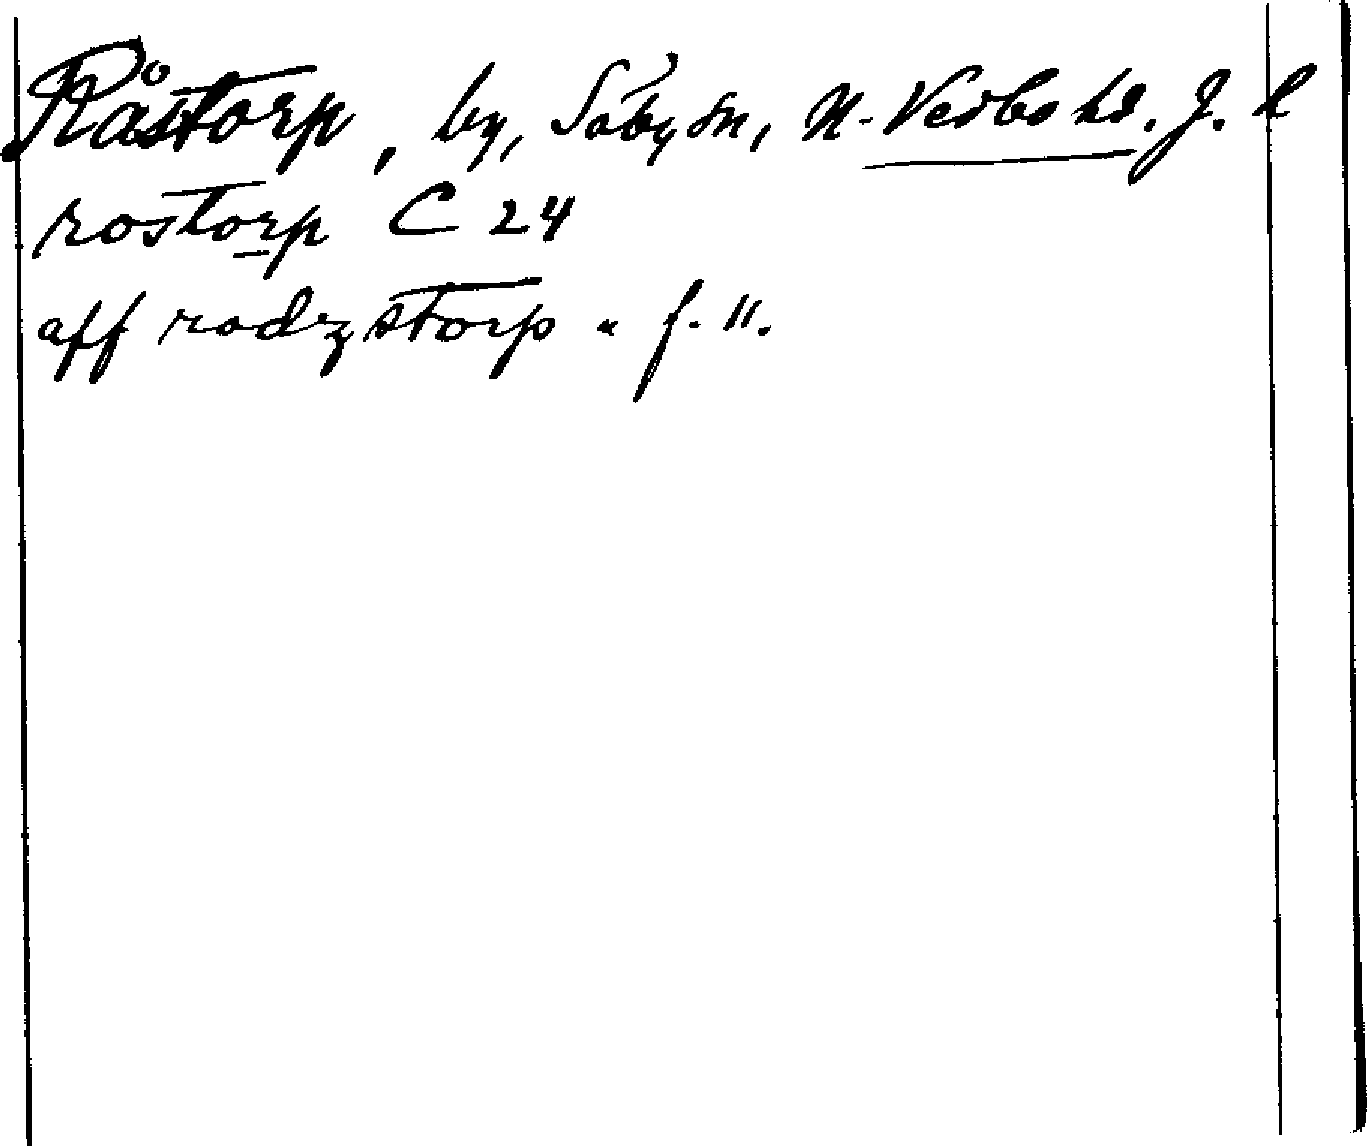 Råstorp, by, Säby sn, N. Vedbo hd. J. l
rostorp C 24
aff radzstorp " f. 11.